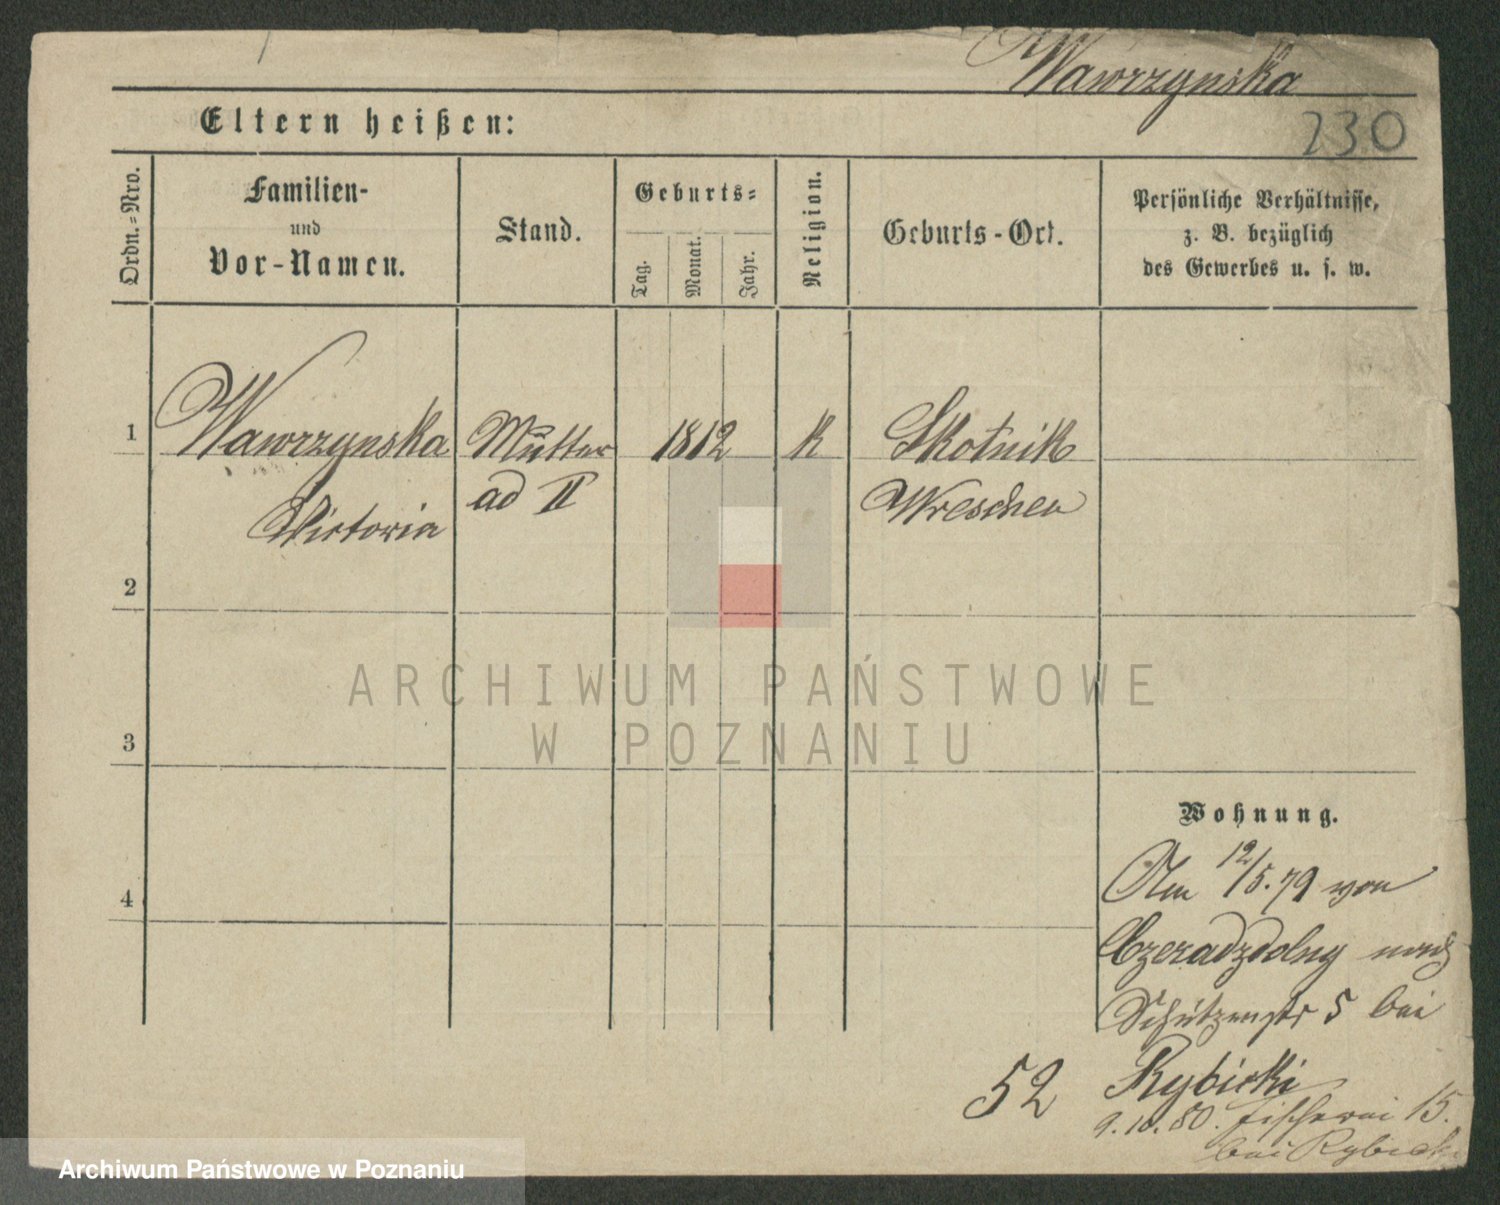 Wawrzynska
230
Eltern heißen:
Ordn.-Nro.
Familien-
und
Vor-Namen.
Stand.
Geburts-
Tag.
Monat.
Jahr.
Religion.
Geburts-Ort.
Persönliche Verhältnisse,
z. B. bezüglich
des Gewerbes u. s. w.
1 Wawrzynska Mutter 1812 k Skotnik
Victoria ad II Wreschen
2
ARCHIWUM PAŃSTWOWE
W POZNANIU
3
Wohnung.
4
Am 12/5.79 von
Czeradzdolny nach
Schützenstr 5 bei
52 Rybicki
9.10.80. Fischerei 15.
bei Rybicki
Archiwum Państwowe w Poznaniu